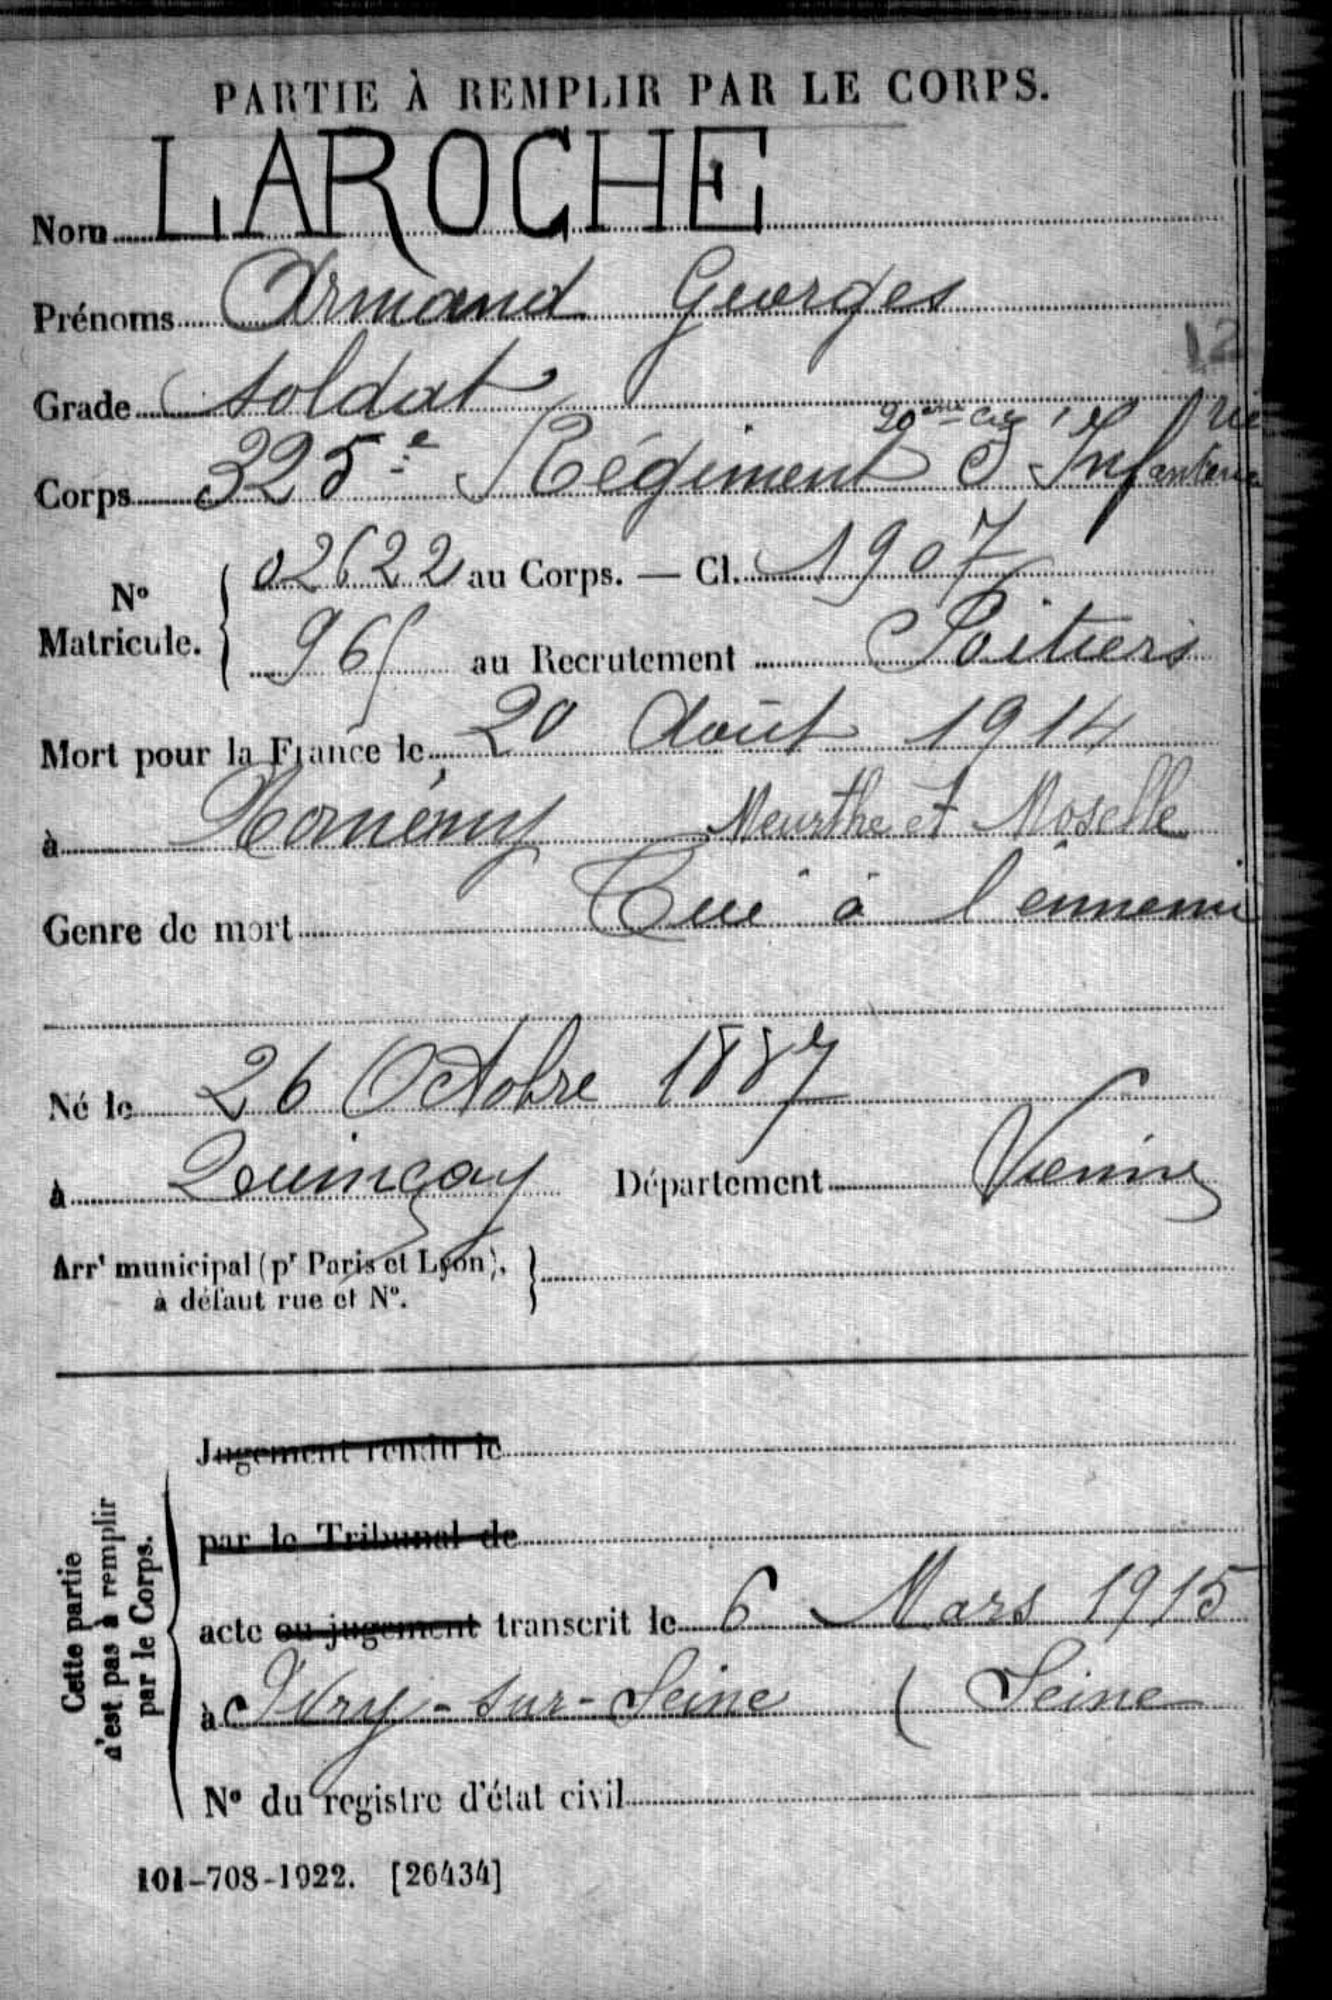 PARTIE À REMPLIR PAR LE CORPS.
Nom LAROCHE
Prénoms Armand Georges
Grade soldat
12
20eme
Corps 325e Régiment d'Infanterie
No Matricule. 02622 au Corps. — Cl. 1907
965 au Recrutement Poitiers
Mort pour la France le 20 Août 1914
à Nomény Meurthe et Moselle
Genre de mort Tué à l'ennemi
Né le 26 Octobre 1887
à Quinçay Département Vienne
Arrt municipal (pr Paris et Lyon),
à défaut rue et No.
Cette partie
n'est pas à remplir
par le Corps.
Jugement rendu le
par le Tribunal de
acte ou jugement transcrit le 6 Mars 1915
à Ivry-sur-Seine (Seine
No du registre d'état civil
101-708-1922. [26434]